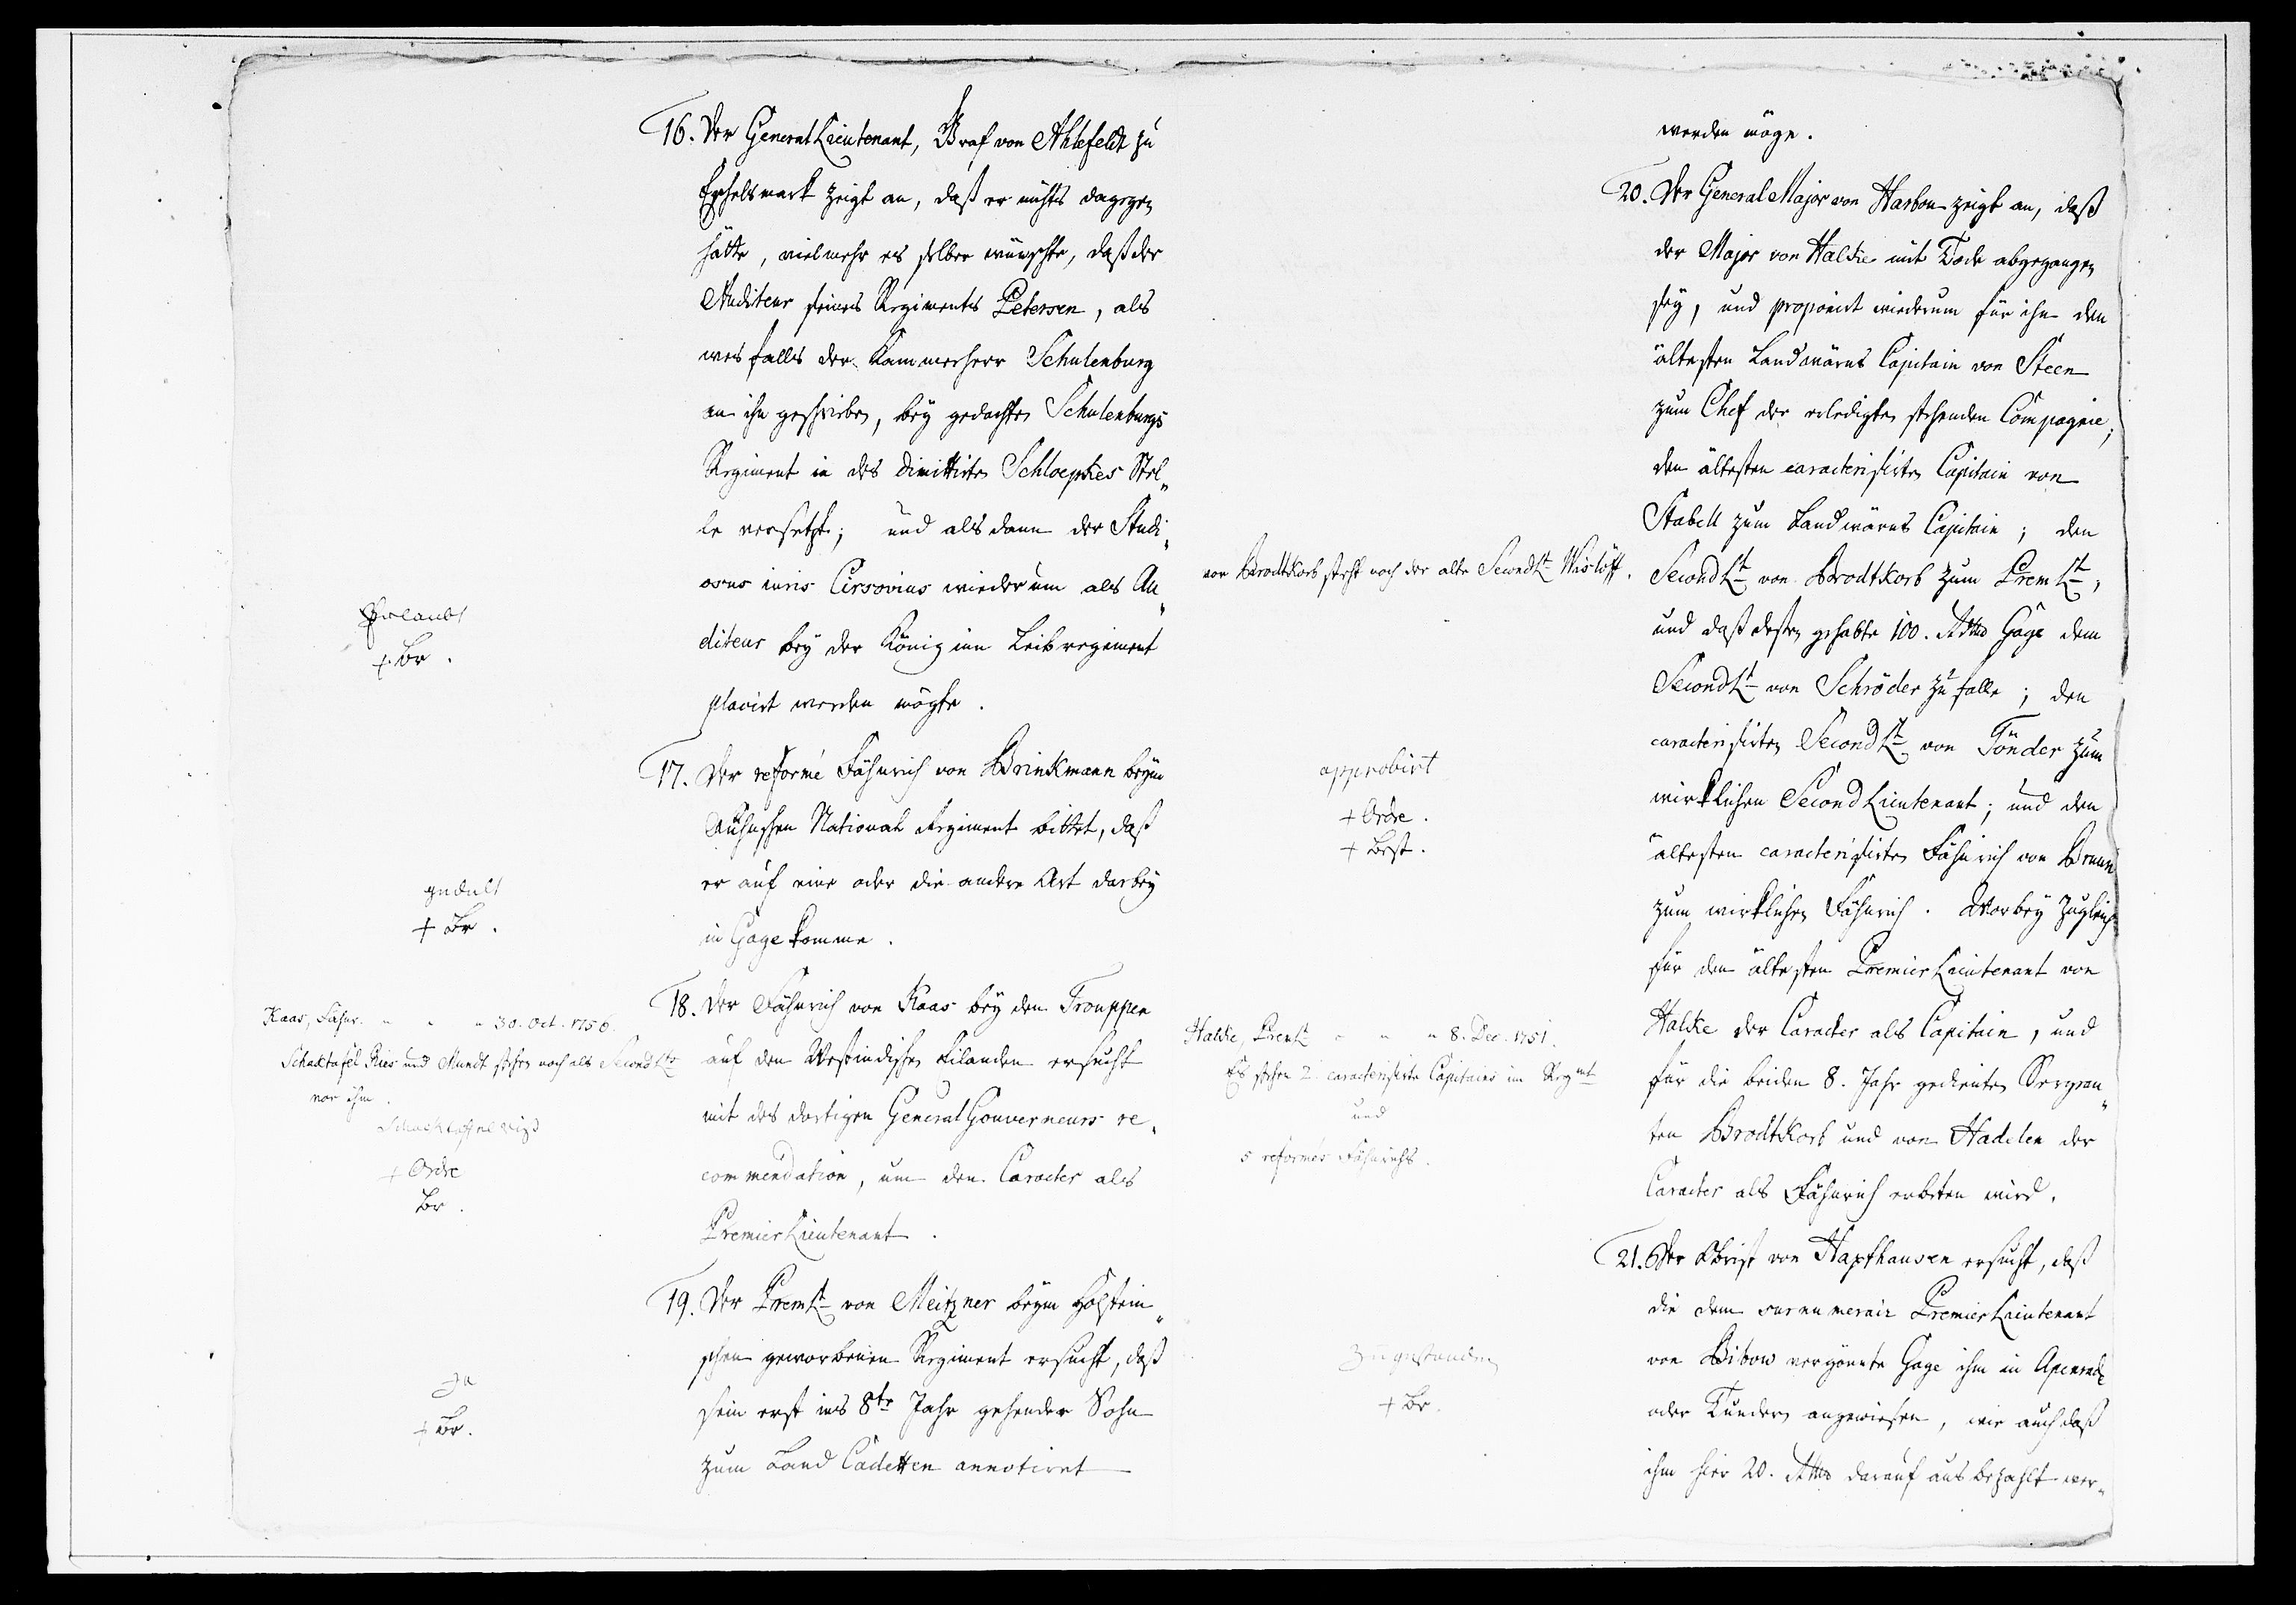 16. Der GeneralLieutenant, Graf von Ahlefeldt zu
Eschelsmark zeigt an, daß er nichts dagegen
hätte, vielmehr es selber wünschte, daß der
Auditeur seines Regiments Petersen, als
wesfalls der Kammerherr Schulenburg
an ihn geschrieben, bey gedachten Schulenburgs
Regiment in des dimittirten Schloepkes Stel„
le versetzt; und alsdann der Studi„
osus iuris Cirsovius wiederum als Au„
diteur bey der Königinn Leibregiment
placirt werden mögte.
Erlaubt
+ Br.
17. Der reformé Fähnrich von Brinkmann beym
National Regiment bittet, daß
er auf eine oder die andere Art darbey
in Gage komme.
gedult
+ Br.
18. Der Fähnrich von Kaas bey den Trouppen
auf den Westindischen Eilanden ersucht
mit des dortigen General Gouverneurs re„
commendation, um den Caracter als
PremierLieutenant.
Kaas, Fähnr. " " " 30. Oct. 1756.
Schaktafel Ries und Mundt stehen noch als SecondLts
vor ihm.
+ Ordre
Br.
19. Der PremLt von Meitzner beym Holstein„
schen geworbenen Regiment ersucht, daß
sein erst ins 8te Jahr gehender Sohn
zum Land Cadetten annotiret
Ja
+ Br.
werden möge.
20. Der General Major von Harbou zeigt an, daß
der Major von Halcke mit Tode abgegangen
sey, und proponirt wiederum für ihn den
ältesten Landwärns Capitain von Steen
zum Chef der erledigten stehenden Compagnie;
den ältesten caracterisirten Capitain von
Stabell zum Landwärns Capitain; den
SecondLt von Brodtkorb zum PremLt,
und daß dessen gehabte 100. Rthlr Gage dem
SecondLt von Schröder zufalle; den
caracterisirten SecondLt von Tönder zum
wirklichen SecondLieutenant; und den
ältesten caracterisirten Fähnrich von Bruun
zum wirklichen Fähnrich. Worbey zugleich
für den ältesten PremierLieutenant von
Halcke der Caracter als Capitain, und
für die beiden 8. Jahr gedienten Sergean„
ten Brodtkorb und von Hadelen der
Caracter als Fähnrich erbeten wird.
vor Brodtkorb steht noch der alte SecondLt Wislöff.
approbirt
+ Ordre.
+ Best.
Halcke, PremLt " " " 8. Dec. 1751.
Es stehen 2. caracterisirte Capitains im Regmt
und
5 reformés Fähnrichs.
21. Der Obrist von Haxthausen ersucht, daß
die dem surnumerair PremierLieutenant
von Bibow vergönnte Gage ihm in Apenrade
oder Tundern angewiesen, wie auch daß
ihm hier 20. Rthlr darauf ausbezahlt wer„
zugestanden
+ Br.